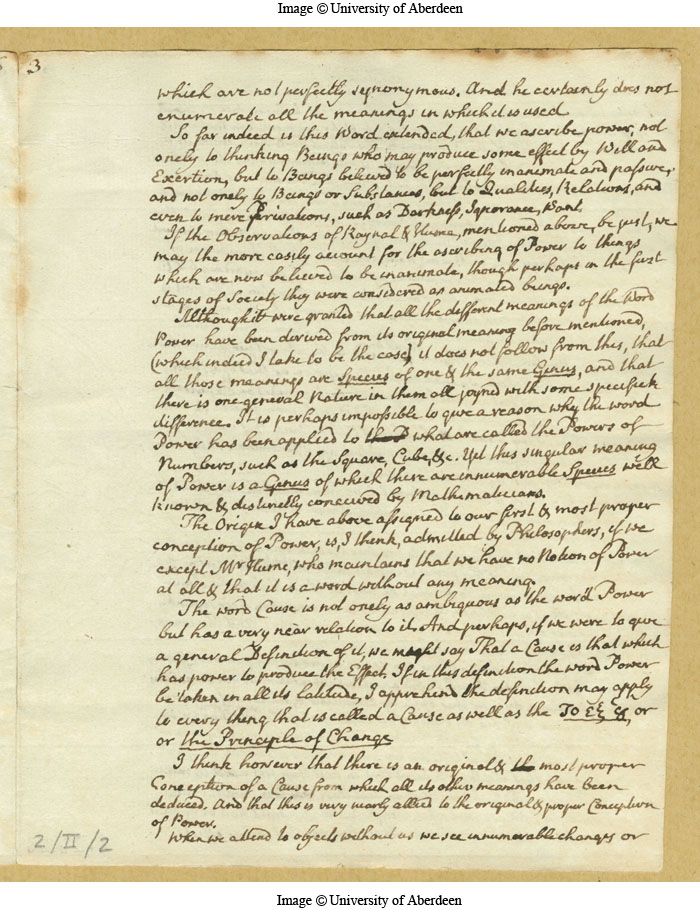 Image © University of Aberdeen
3
which are not perfectly synonymous. And he certainly does not
enumerate all the meanings in which it is used
So far indeed is this Word extended, that we ascribe power, not
onely to thinking Beings who may produce some effect by Will and
Exertion, but to Beings believed to be perfectly inanimate and passive,
and not onely to Beings or Substances, but to Qualities, Relations, and
even to mere privations, such as Darkness, Ignorance, Want.
If the Observations of Raynal & Hume, mentioned above, be just, we
may the more easily account for the ascribing of Power to things
which are now believed to be inanimate, though perhaps in the first
stages of Society they were considered as animated beings.
Although it were granted that all the different meanings of the Word
Power have been derived from its original meaning before mentioned,
(which indeed I take to be the case) it does not follow from this, that
all those meanings are Species of one & the same Genus, and that
there is one general Nature in them all joyned with some specifick
difference. It is perhaps impossible to give a reason why the word
Power has been applied to what are called the Powers of
Numbers, such as the Square, Cube, &c. Yet this singular meaning
of Power is a Genus of which there are innumerable Species well
known & distinctly conceived by Mathematicians.
The Origin I have above assigned to our first & most proper
conception of Power, is, I think, admitted by Philosophers, if we
except Mr Hume, who maintains that we have no Notion of Power
at all & that it is a word without any meaning.
The word Cause is not onely as ambiguous as the word Power
but has a very near relation to it. And perhaps, if we were to give
a general Definition of it, we might say That a Cause is that which
has power to produce the Effect. If in this definition the word Power
be taken in all its latitude, I apprehend the definition may apply
to every thing that is called a Cause as well as the Το εξ ου, or
or the Principle of Change
I think however that there is an original & most proper
Conception of a Cause from which all its other meanings have been
deduced. And that this is very nearly allied to the original & proper Conception
of Power.
When we attend to objects without us we see innumerable changes or
2/II/2
Image © University of Aberdeen